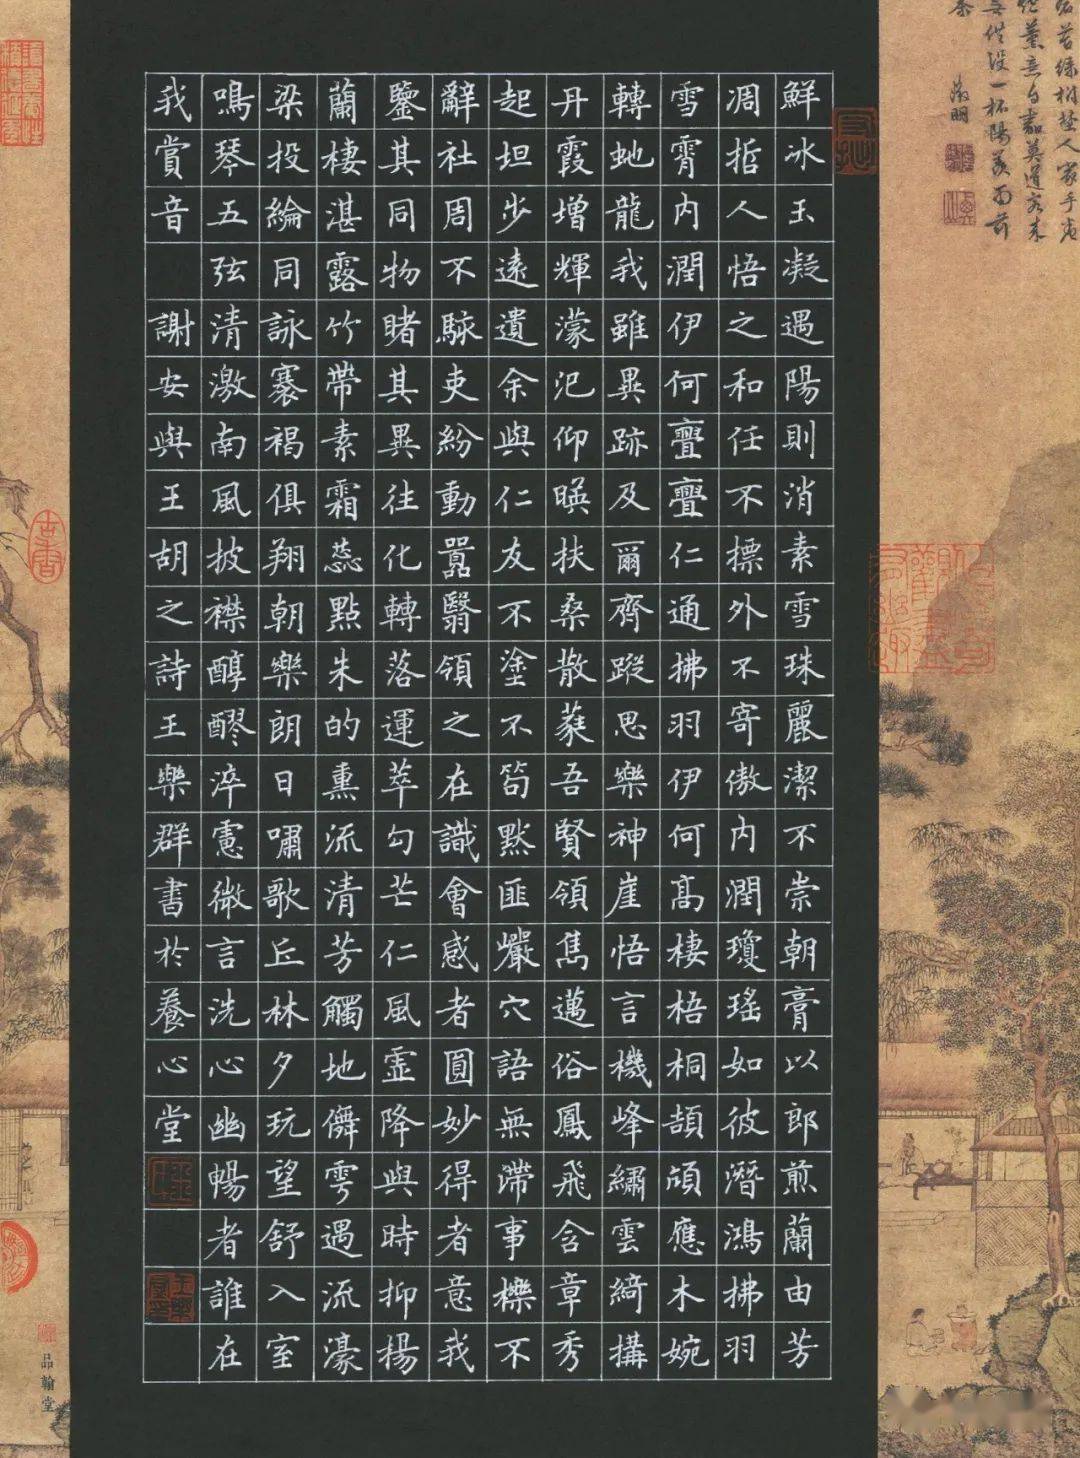 鮮冰玉凝遇陽則消素雪珠麗潔不崇朝膏以郎煎蘭由芳
凋哲人悟之和任不摽外不寄傲內潤瓊瑤如彼潛鴻拂羽
雪霄內潤伊何亹亹仁通拂羽伊何高棲梧桐頡頏應木婉
轉虵龍我雖異跡及爾齊蹤思樂神崖悟言機峰繡雲綺構
丹霞增輝濛汜仰暎扶桑散蕤吾賢領雋邁俗鳳飛含章秀
起坦步遠遺余與仁友不塗不笱默匪巖穴語無滯事櫟不
辭社周不駭吏紛動囂翳領之在識會感者圓妙得者意我
鑒其同物睹其異往化轉落運萃勾芒仁風霊降與時抑揚
蘭棲湛露竹帶素霜蕊點朱的熏流清芳觸地儛雩遇流濠
梁投綸同詠褰褐俱翔朝樂朗日嘯歌丘林夕玩望舒入室
鳴琴五弦清激南風披襟醇醪淬慮微言洗心幽暢者誰在
我賞音 謝安與王胡之詩王樂群書於養心堂
一杯陽羨雨前
茶
徵明
品翰堂